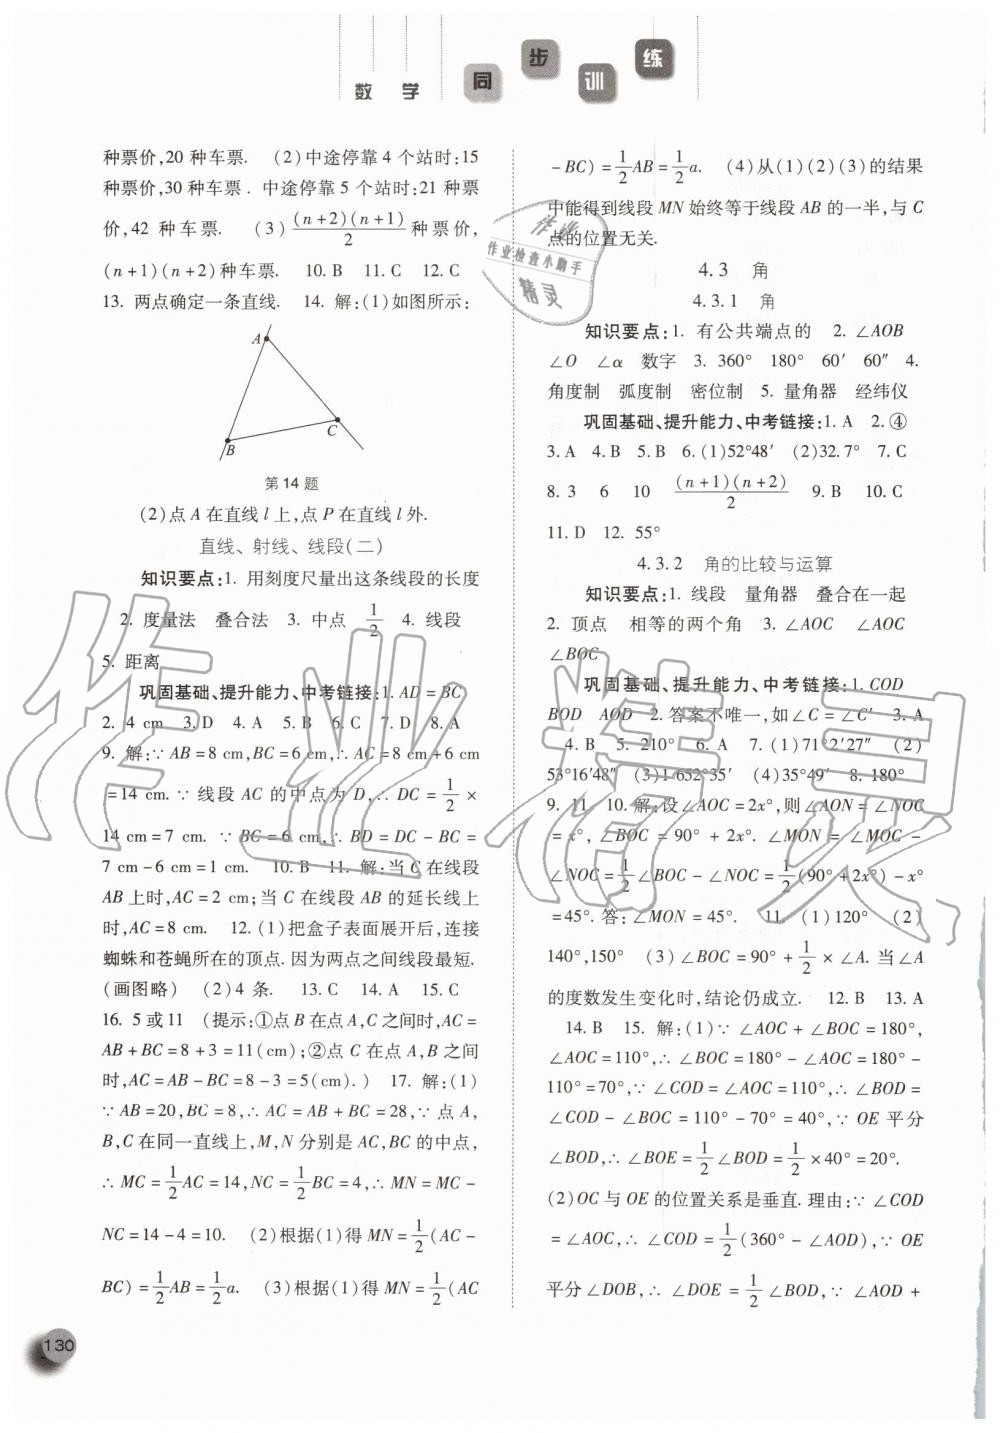 数 学 同 步 训 练
种票价,20 种车票. (2)中途停靠 4 个站时:15
种票价,30 种车票. 中途停靠 5 个站时:21 种票
价,42 种车票. (3) (n+2)(n+1)/2 种票价,
(n+1)(n+2)种车票. 10. B 11. C 12. C
13. 两点确定一条直线. 14. 解:(1)如图所示:
A
B
C
第14题
(2)点 A 在直线 l 上,点 P 在直线 l 外.
直线、射线、线段(二)
知识要点:1. 用刻度尺量出这条线段的长度
2. 度量法 叠合法 3. 中点 1/2 4. 线段
5. 距离
巩固基础、提升能力、中考链接:1. AD=BC
2. 4 cm 3. D 4. A 5. B 6. C 7. D 8. A
9. 解:∵AB=8 cm,BC=6 cm,∴AC=8 cm+6 cm
=14 cm. ∵线段 AC 的中点为 D,∴DC=1/2×
14 cm=7 cm. ∵BC=6 cm,∴BD=DC-BC=
7 cm-6 cm=1 cm. 10. B 11. 解:当 C 在线段
AB 上时,AC=2 cm;当 C 在线段 AB 的延长线上
时,AC=8 cm. 12. (1)把盒子表面展开后,连接
蜘蛛和苍蝇所在的顶点. 因为两点之间线段最短.
(画图略) (2)4 条. 13. C 14. A 15. C
16. 5 或11 (提示:①点 B 在点 A,C 之间时,AC=
AB+BC=8+3=11(cm);②点 C 在点 A,B 之间
时,AC=AB-BC=8-3=5(cm).) 17. 解:(1)
∵AB=20,BC=8,∴AC=AB+BC=28,∵点 A,
B,C 在同一直线上,M,N 分别是 AC,BC 的中点,
∴MC=1/2AC=14,NC=1/2BC=4,∴MN=MC-
NC=14-4=10. (2)根据(1)得 MN=1/2(AC-
BC)=1/2AB=1/2a. (3)根据(1)得 MN=1/2(AC
130
-BC)=1/2AB=1/2a. (4)从(1)(2)(3)的结果
中能得到线段 MN 始终等于线段 AB 的一半,与 C
点的位置无关.
作业
作业检查小助手
精灵
4.3 角
4.3.1 角
知识要点:1. 有公共端点的 2. ∠AOB
∠O ∠α 数字 3. 360° 180° 60′ 60″ 4.
角度制 弧度制 密位制 5. 量角器 经纬仪
巩固基础、提升能力、中考链接:1. A 2. ④
3. A 4. B 5. B 6. (1)52°48′ (2)32.7° 7. C
8. 3 6 10 (n+1)(n+2)/2 9. B 10. C
11. D 12. 55°
4.3.2 角的比较与运算
知识要点:1. 线段 量角器 叠合在一起
2. 顶点 相等的两个角 3. ∠AOC ∠AOC
∠BOC
巩固基础、提升能力、中考链接:1. COD
BOD AOD 2. 答案不唯一,如∠C=∠C′ 3. A
4. B 5. 210° 6. A 7. (1)71°2′27″ (2)
53°16′48″ (3)1 652°35′ (4)35°49′ 8. 180°
9. 11 10. 解:设∠AOC=2x°,则∠AON=∠NOC
=x°,∠BOC=90°+2x°. ∠MON=∠MOC-
∠NOC=1/2∠BOC-∠NOC=1/2(90°+2x°)-x°
=45°. 答:∠MON=45°. 11. (1)120° (2)
140°,150° (3)∠BOC=90°+1/2×∠A. 当∠A
的度数发生变化时,结论仍成立. 12. B 13. A
14. B 15. 解:(1)∵∠AOC+∠BOC=180°,
∠AOC=110°,∴∠BOC=180°-∠AOC=180°-
110°=70°,∵∠COD=∠AOC=110°,∴∠BOD=
∠COD-∠BOC=110°-70°=40°,∵OE 平分
∠BOD,∴∠BOE=1/2∠BOD=1/2×40°=20°.
(2)OC 与 OE 的位置关系是垂直. 理由:∵∠COD
=∠AOC,∴∠COD=1/2(360°-∠AOD),∵OE
平分∠DOB,∴∠DOE=1/2∠BOD,∵∠AOD+
作业精灵